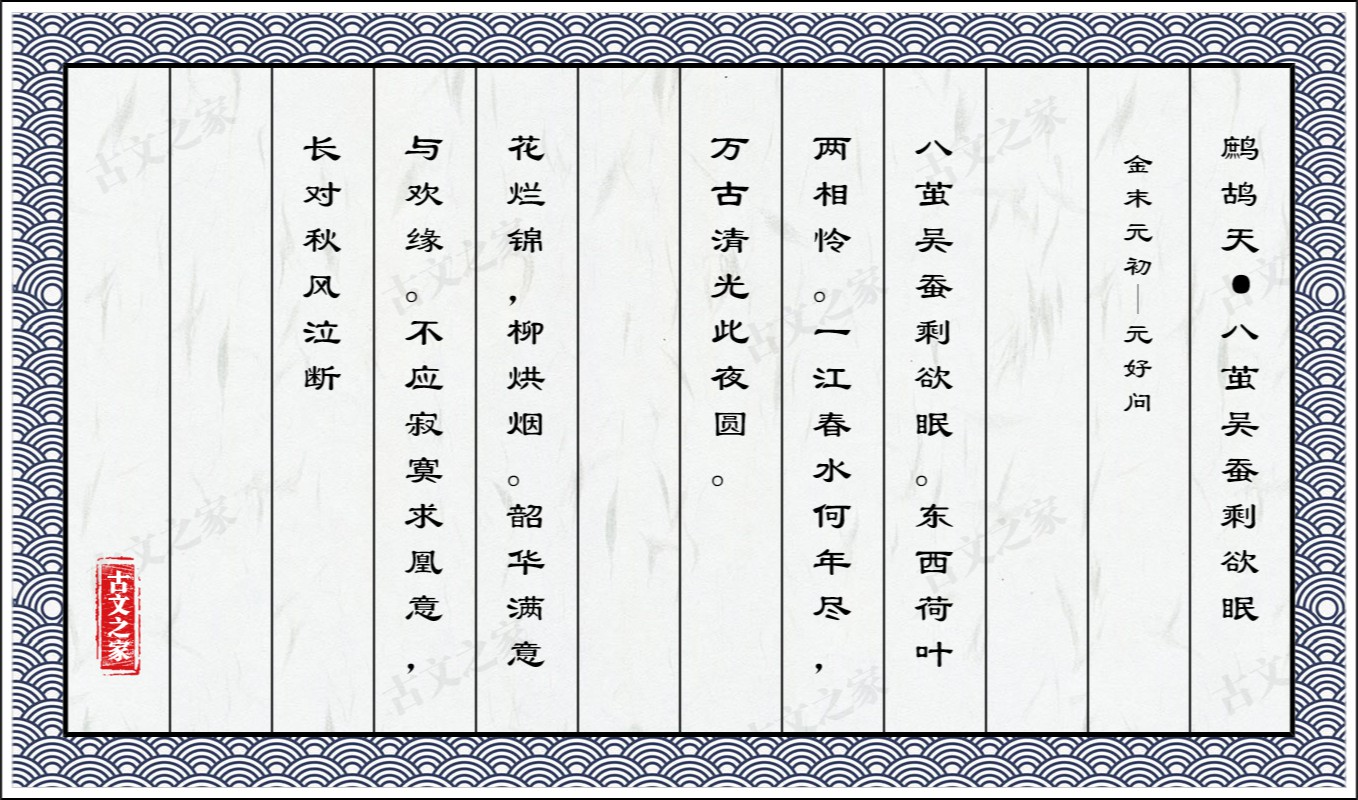 鹧鸪天●八茧吴蚕剩欲眠
金末元初—元好问
八茧吴蚕剩欲眠。东西荷叶
两相怜。一江春水何年尽，
万古清光此夜圆。
花烂锦，柳烘烟。韶华满意
与欢缘。不应寂寞求凰意，
长对秋风泣断
古文之家